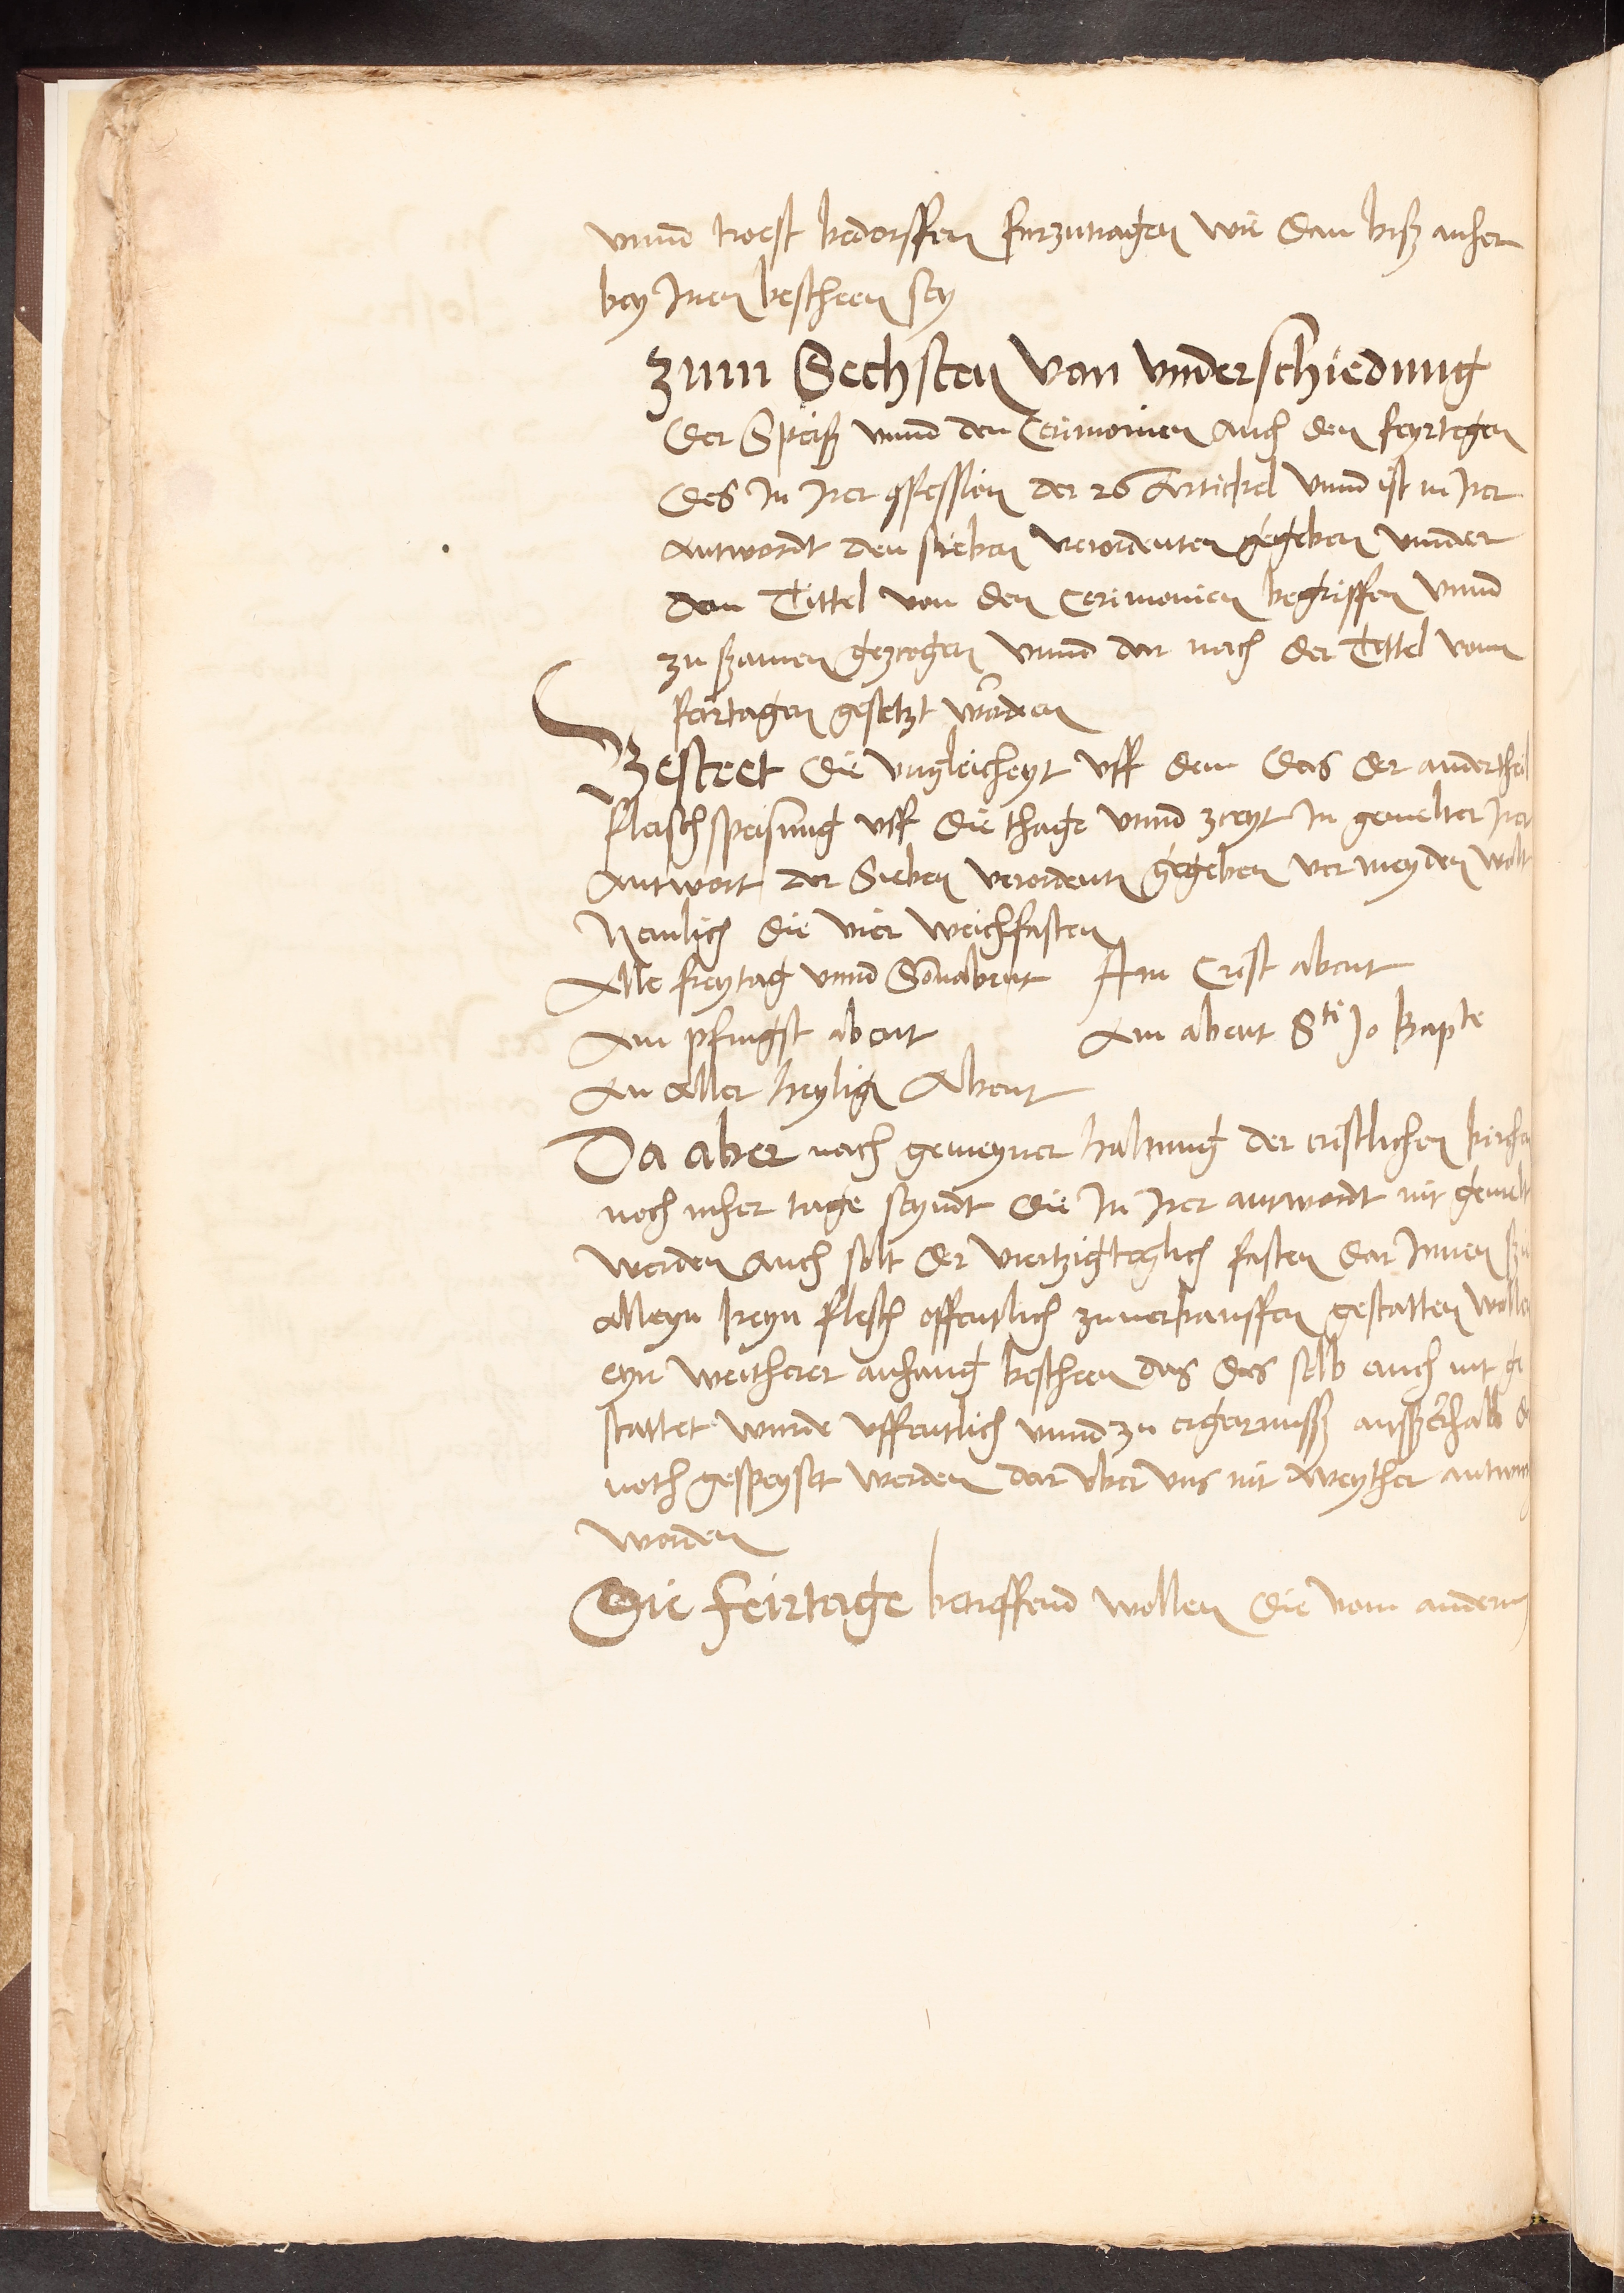 vnnd troest bedorffen furzutragen wie dan bisz anher
bey Inen bescheen sey
Zum Sechsten von vnderschiedung
der Speisz vnnd den Cerimonien auch den feyrtegen
des In Irer ꝯfession der 26 Artickel vnnd ist in Irer
antwordt den sieben verordenten gegeben vnnder
dem Tittel von den Cerimonien begriffen vnnd
zu szamen gezcogen vnnd dar nach der Tittel vom
feirtagen gesetzt worden
Besteet die vngleicheyt vff dem das der andertheil
fleischspeisung vff die thage vnnd zceyt In gemelter Irer
Antwort der Sieben verordentn gegeben vermeyden wolt
Nemlich die vier weichfasten
Alle freytag vnnd Sonabent Am Crist abent
Am pfingst abent Am abent Sti Jo Bapte
An Aller heylign Abent
Da aber nach gemeyner haltung der cristlichen kirchen
noch meher tage seyndt die In Irer antwordt nit gemelt
werden auch solt der viertzigteglich fasten dar Innen szu
alleyn keyn flesch offentlich zuuerkauffen gestatten wollen
eyn weitherer anhang bescheen das das selb auch nit ge
stattet wurde vffentlich vnnd zu ergernusz ausszerhalb d
noth gespeyset werden dar vber vns nit weyther antwort
worden
Die feirtage betreffend wollen die vom andern